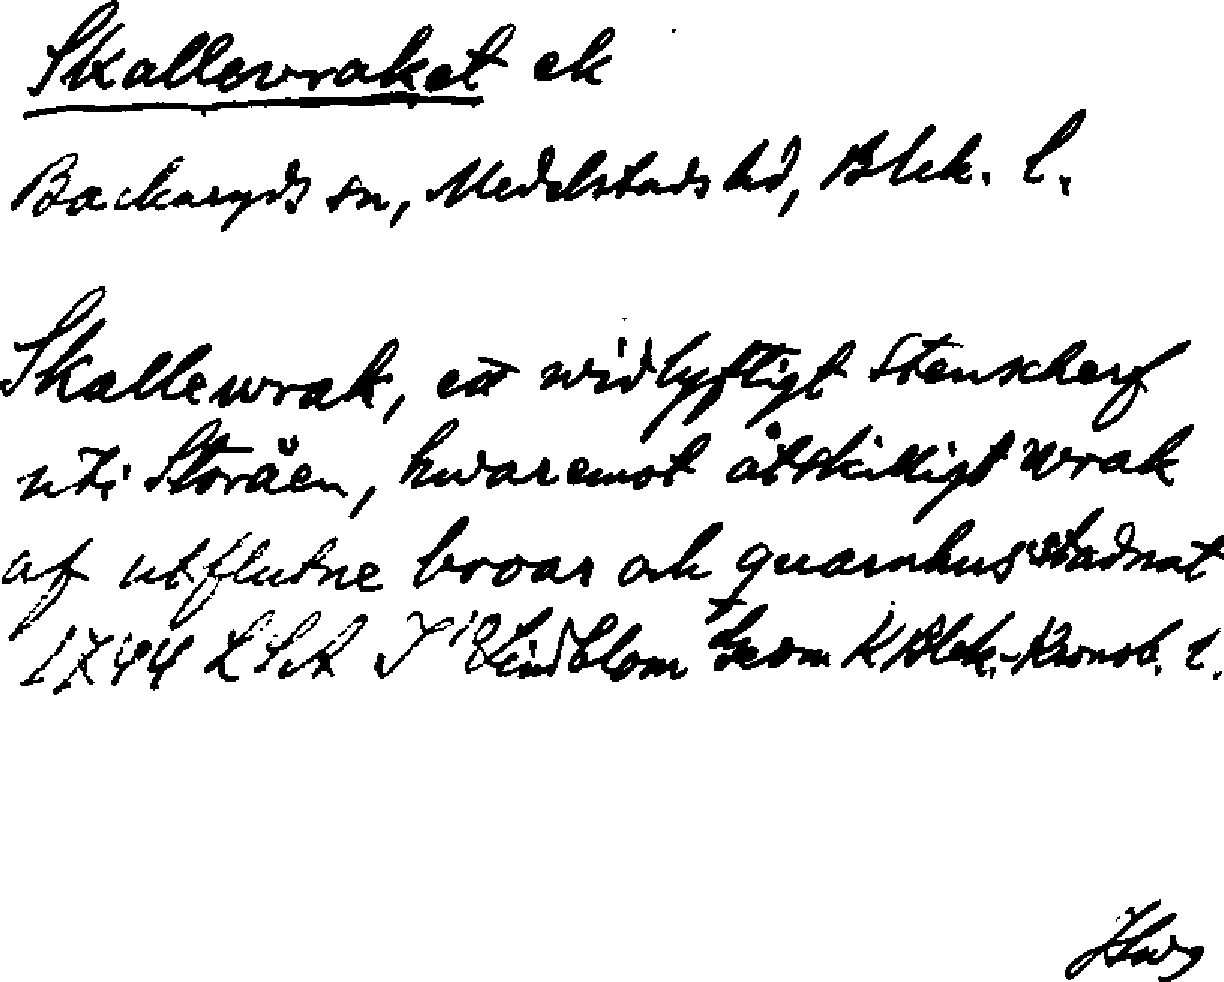 Skallevraket ek
Backaryds sn, Medelstads hd, Blek. l.
Skallewrak, ett widlyftigt Stenskerf
uti Storåen, hwaremot åtskilligt wrak
af utflutne broar och quarnhus stadnat
1744 LSA Lindblom Geom K Blek.-Kronob. l.